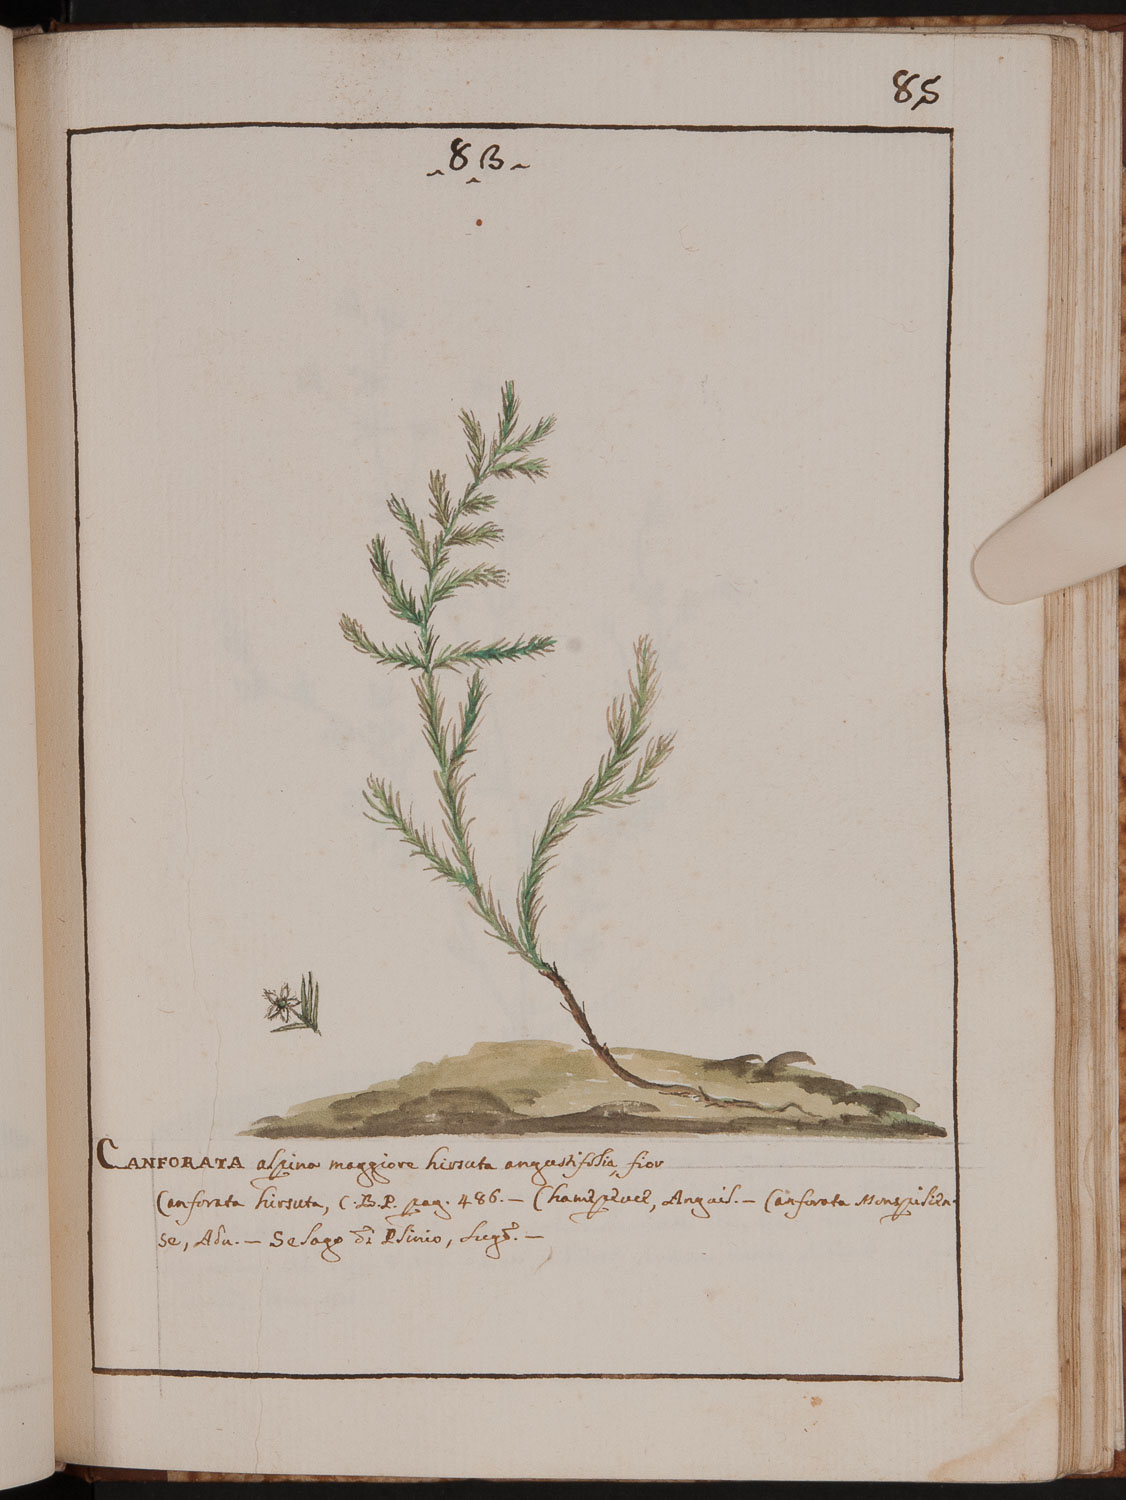 85
8 B
CANFORATA alpina maggiore hirsuta angustifolia, fior
Canforata hirsuta, C. B. P. pag. 486. — Chamepeuce, Anguil. — Canforata Monspilien-
se, Adu. — Selago di Plinio, Lugd. —